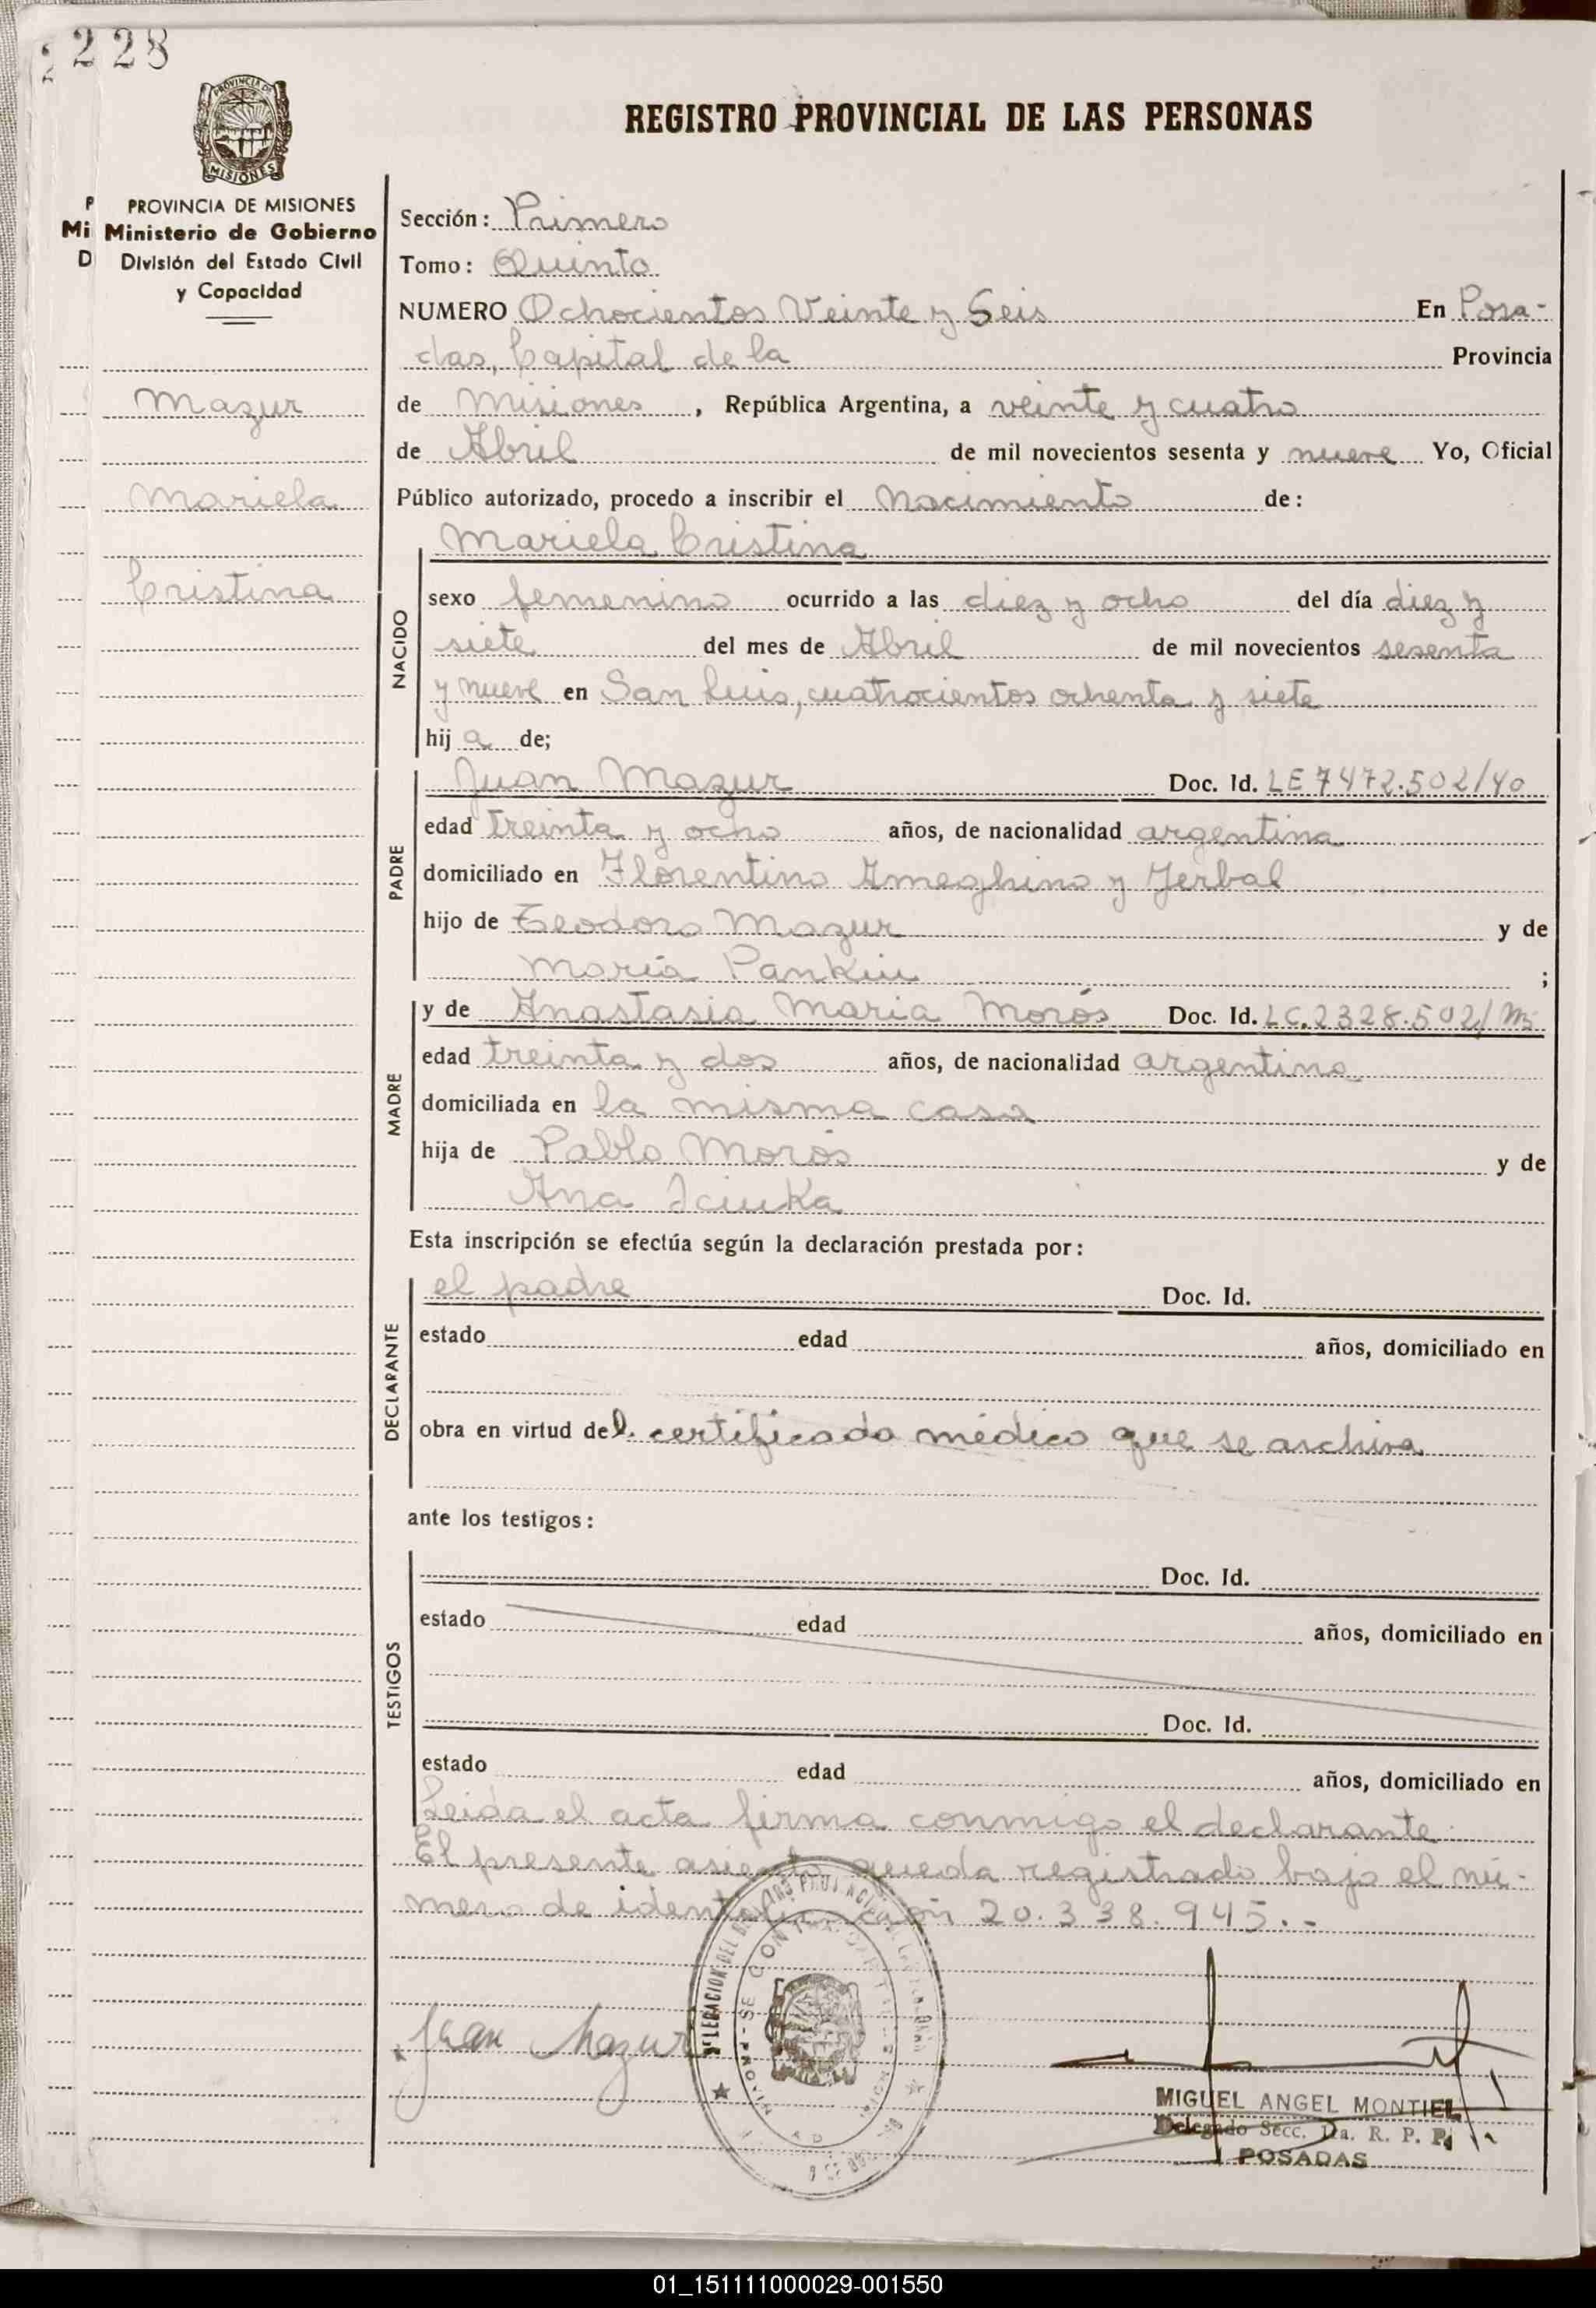 228
REGISTRO PROVINCIAL DE LAS PERSONAS
PROVINCIA DE MISIONES
Ministerio de Gobierno
División del Estado Civil
y Capacidad
Mazur
Mariela
Cristina
Sección: Primero
Tomo: Quinto
NUMERO Ochocientos Veinte y Seis En Posa-
das, Capital de la Provincia
de Misiones, República Argentina, a veinte y cuatro
de Abril de mil novecientos sesenta y nueve Yo, Oficial
Público autorizado, procedo a inscribir el Nacimiento de:
Mariela Cristina
NACIDO
sexo femenino ocurrido a las diez y ocho del día diez y
siete del mes de Abril de mil novecientos sesenta
y nueve en San Luis, cuatrocientos ochenta y siete
hija de;
PADRE
Juan Mazur Doc. Id. LE 7472.502/40
edad treinta y ocho años, de nacionalidad argentina
domiciliado en Florentino Ameghino y Yerbal
hijo de Teodoro Mazur y de
María Pankiu ;
MADRE
y de Anastasia Maria Morós Doc. Id. LC.2328.502/
edad treinta y dos años, de nacionalidad argentina
domiciliada en la misma casa
hija de Pablo Morós y de
Ana
Esta inscripción se efectúa según la declaración prestada por:
DECLARANTE
el padre Doc. Id.
estado edad años, domiciliado en
obra en virtud del certificado médico que se archiva
ante los testigos:
TESTIGOS
Doc. Id.
estado edad años, domiciliado en
Doc. Id.
estado edad años, domiciliado en
Leida el acta firma conmigo el declarante
El presente asiento queda registrado bajo el nú-
mero de identificación 20.338.945.-
Juan Mazur
MIGUEL ANGEL MONTIEL
Delegado Secc. 1ra. R. P. P.
POSADAS
01_151111000029-001550